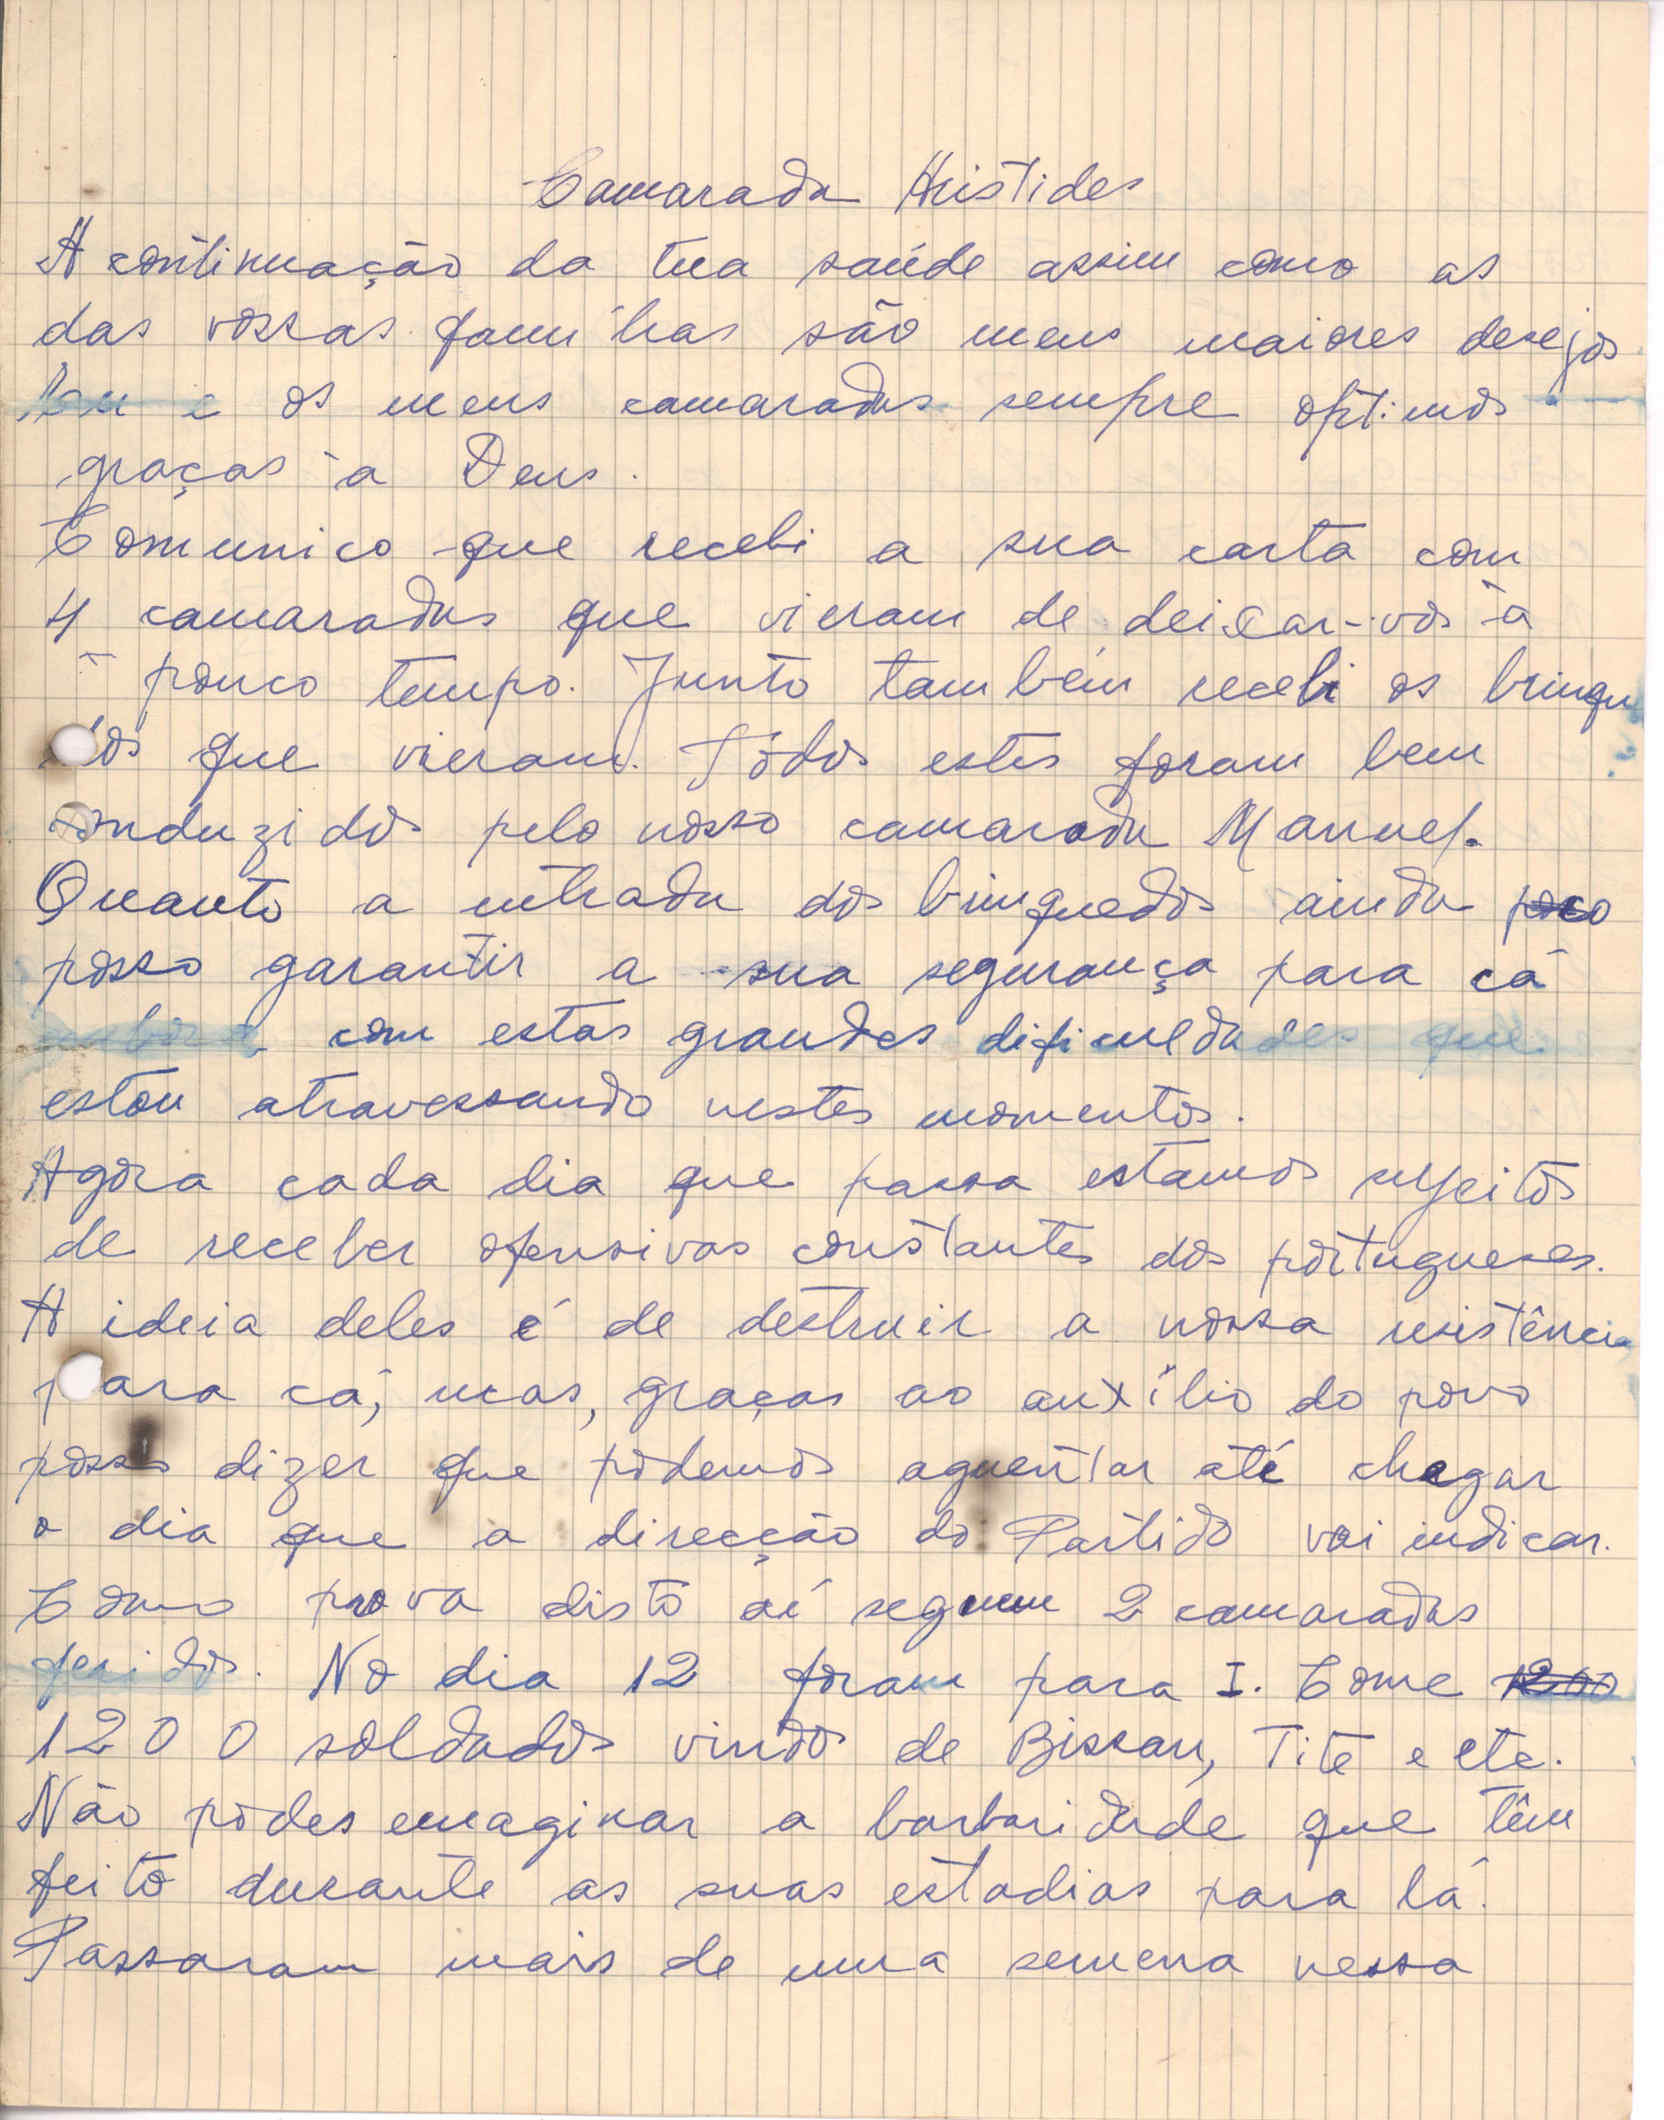 Camarada Aristides
A continuação da tua saúde assim como as
das vossas famílias são meus maiores desejos
Eu e os meus camaradas sempre optimos
graças à Deus.
Comunico que recebi a sua carta com
4 camaradas que vieram de deixar-vos à
pouco tempo. Junto também recebi os brinque
dos que vieram. Todos estes foram bem
conduzidos pelo nosso camarada Manuel.
Quanto a entrada dos brinquedos ainda poco
posso garantir a sua segurança para cá
embora com estas grandes dificuldades que
estou atravessando nestes momentos.
Agora cada dia que passa estamos sujeitos
de receber ofensivas constantes dos portugueses.
A ideia deles é de destruir a nossa resistência
para cá, mas, graças ao auxílio do povo
posso dizer que podemos aguentar até chegar
o dia que a direcção do Partido vai indicar.
Como prova disto aí seguem 2 camaradas
feridos. No dia 12 foram para I. Come 1200
1200 soldados vindos de Bissau, Tite e etc.
Não podes emaginar a barbaridade que têm
feito durante as suas estadias para lá.
Passaram mais de uma semena nessa